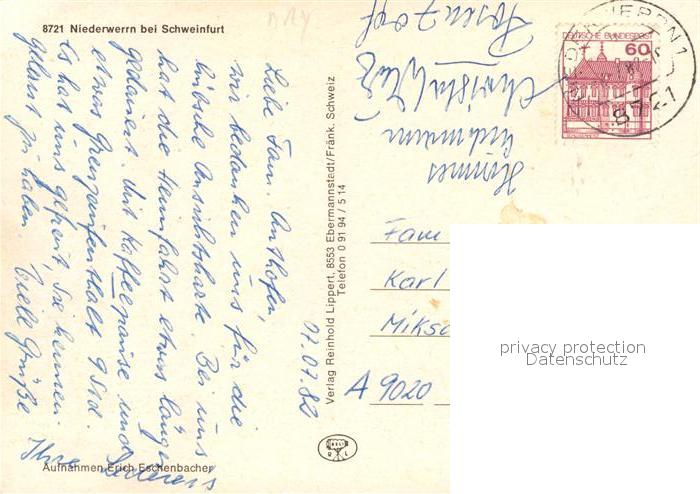 8721 Niederwerrn bei Schweinfurt
07.07.82
Liebe Fam. Anthofer,
wir bedanken uns für die
hübsche Ansichtskarte. Bei uns
hat die Heimfahrt etwas länger
gedauert. Mit Kaffeepause und
etwas Grenzaufenthalt 9 Std.
Es hat uns gefreut Sie kennen
gelernt zu haben. Viele Grüße
Ihre
Hannes
Christa
Aufnahmen Erich Eschenbacher
Verlag Reinhold Lippert, 8553 Ebermannstadt/Fränk. Schweiz
Telefon 0 91 94 / 5 14
DEUTSCHE BUNDESPOST
60
8721
Fam
Karl
A 9020
privacy protection
Datenschutz